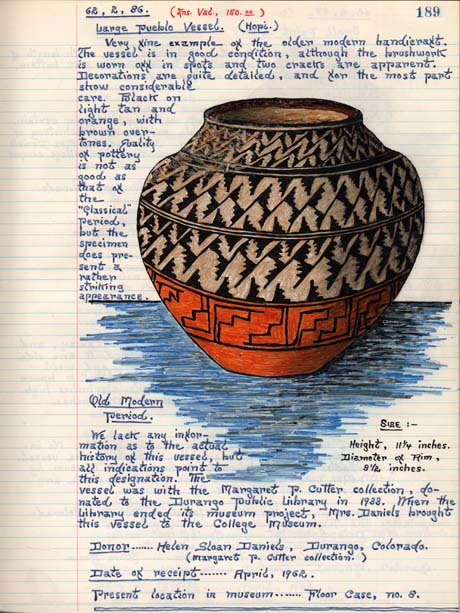 62, 2, 86. (Ins. Val., 150.00) 189
Large Pueblo Vessel. (Hopi.)
Very fine example of the older modern handicraft.
The vessel is in good condition, although the brushwork
is worn off in spots and two cracks are apparent.
Decorations are quite detailed, and for the most part
show considerable
care. Black on
light tan and
orange, with
brown over-
tones. Quality
of pottery
is not as
good as
that of
the
"Classical"
Period,
but the
specimen
does pre-
sent a
rather
striking
appearance.
Old Modern
Period.
We lack any infor-
mation as to the actual
history of this vessel, but
all indications point to
this designation. The
vessel was with the Margaret P. Cutter collection, do-
nated to the Durango Public Library in 1938. When the
Library ended its museum project, Mrs. Daniels brought
this vessel to the College Museum.
SIZE :-
Height, 11¼ inches.
Diameter of Rim,
8½ inches.
Donor ...... Helen Sloan Daniels, Durango, Colorado.
(Margaret P. Cutter collection.)
Date of receipt ...... April, 1962.
Present location in museum ...... Floor Case, no. 8.